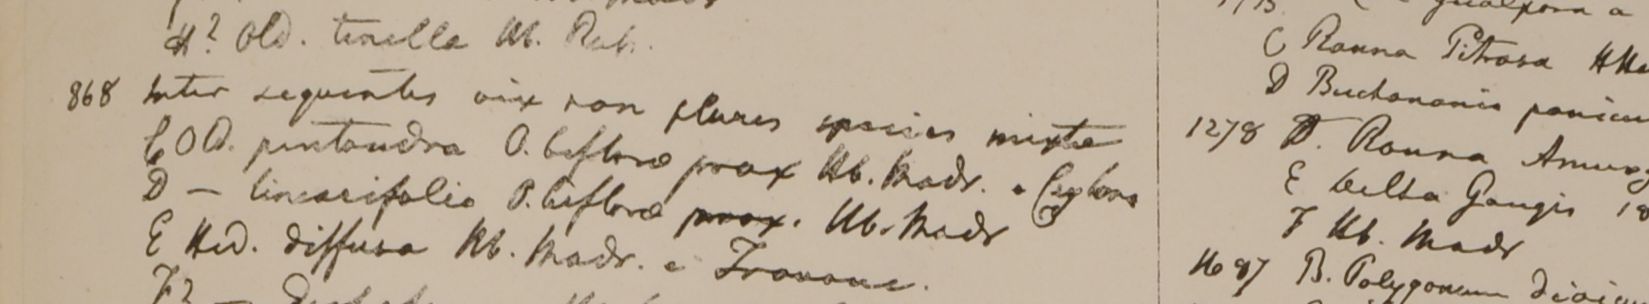 H? Old. tenella Hb. Rub.
868 Inter sequentes vix non plures species mixtae
C Old. pentandra O. biflorae prox Hb. Madr. e Ceylona
D — linearifolia O. biflorae prox. Hb. Madr
E Hed. diffusa Hb. Madr. e Travanc.
F? —
C Rouna
D Buchanania panicu
1278 D. Rouna
E Delta Gangis 18
F Hb. Madr
1687 B. Polygonum dioic